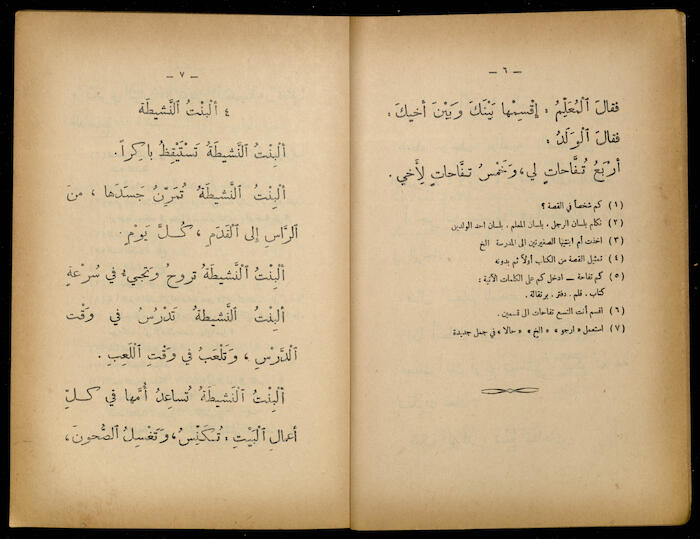 — ٦ —
فقالَ ٱلْمُعَلِّمُ : إقْسِمْها بَيْنَكَ وَبَيْنَ أخيكَ :
فقالَ ٱلْوَلَدُ :
أرْبَعُ تُفَّاحاتٍ لي، وَخَمْسُ تفَّاحاتٍ لِأَخي .
(١) كم شخصاً في القصة ؟
(٢) تكلم بلسان الرجل . بلسان المعلم . بلسان احد الولدين
(٣) اخذت أم ابنتيها الصغيرتين الى المدرسة الخ
(٤) تمثيل القصة من الكتاب أولاً ثم بدونه
(٥) كم تفاحة — ادخل كم على الكلمات الآتية :
كتاب . قلم . دفتر . برتقالة .
(٦) اقسم أنت التسع تفاحات الى قسمين .
(٧) استعمل « ارجو » « الخ » « حالا » في جمل جديدة
— ٧ —
٤ ألبنْتُ ٱلنَّشيطَة
ألبِنْتُ ٱلنَّشيطَةُ تَسْتَيْقِظُ باكِراً.
ألبِنْتُ ٱلنَّشيطَةُ تُمَرِّنُ جَسَدَها ، منَ
ٱلرَّاسِ إلى ٱلقَدَمِ ، كُلَّ يَوْمٍ .
ألبِنْتُ ٱلنَّشيطَةُ تروحُ وَتجيءُ في سُرْعَةٍ
ألبِنْتُ ٱلنَّشيطَةُ تَدْرُسُ في وَقْت
ٱلدَّرْسِ ، وَتَلْعَبُ في وَقْتِ ٱللَّعِبِ .
ألبِنْتُ ٱلنَّشيطَةُ تُساعِدُ أُمَّها في كلِّ
أعمالِ ٱلبَيْتِ : تُسكَنِّسُ، وَتَغْسِلُ ٱلصُّحونَ،